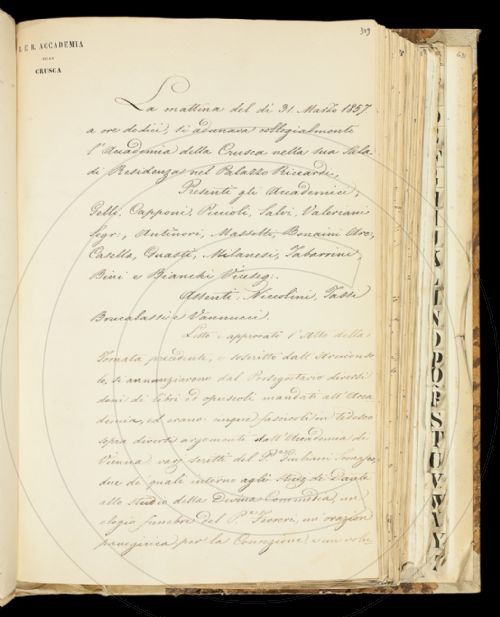 I. E R. ACCADEMIA
DELLA
CRUSCA
La mattina del dì 31 Marzo 1857
a ore dodici, si adunava collegialmente
l'Accademia della Crusca nella sua Sala
di Residenza nel Palazzo Riccardi.
Presenti gli Accademici,
Gelli, Capponi, Puccioli, Salvi, Valeriani
Segr., Antinori, Masselli, Bonaini Arc.,
Casella, Guasti, Milanesi, Tabarrini,
Bini e Bianchi Viceseg.
Assenti, Niccolini, Tassi
Boucalassi e Vannucci.
Letto e approvato l'Atto della
Tornata precedente, e soscritto dall'Arciconso-
lo, si annunziarono dal Prosegretario diversi
doni di libri ed opuscoli mandati all'Acca
demia, ed erano cinque fascicoli in tedesco
sopra diversi argomenti dall'Accademia di
Vienna varj scritti del Giuliani
due de' quali intorno agli studj di Dante
allo studio della Divina Commedia, un
elogio funebre del un'orazion
panegirica per la Concezione, e un volu-